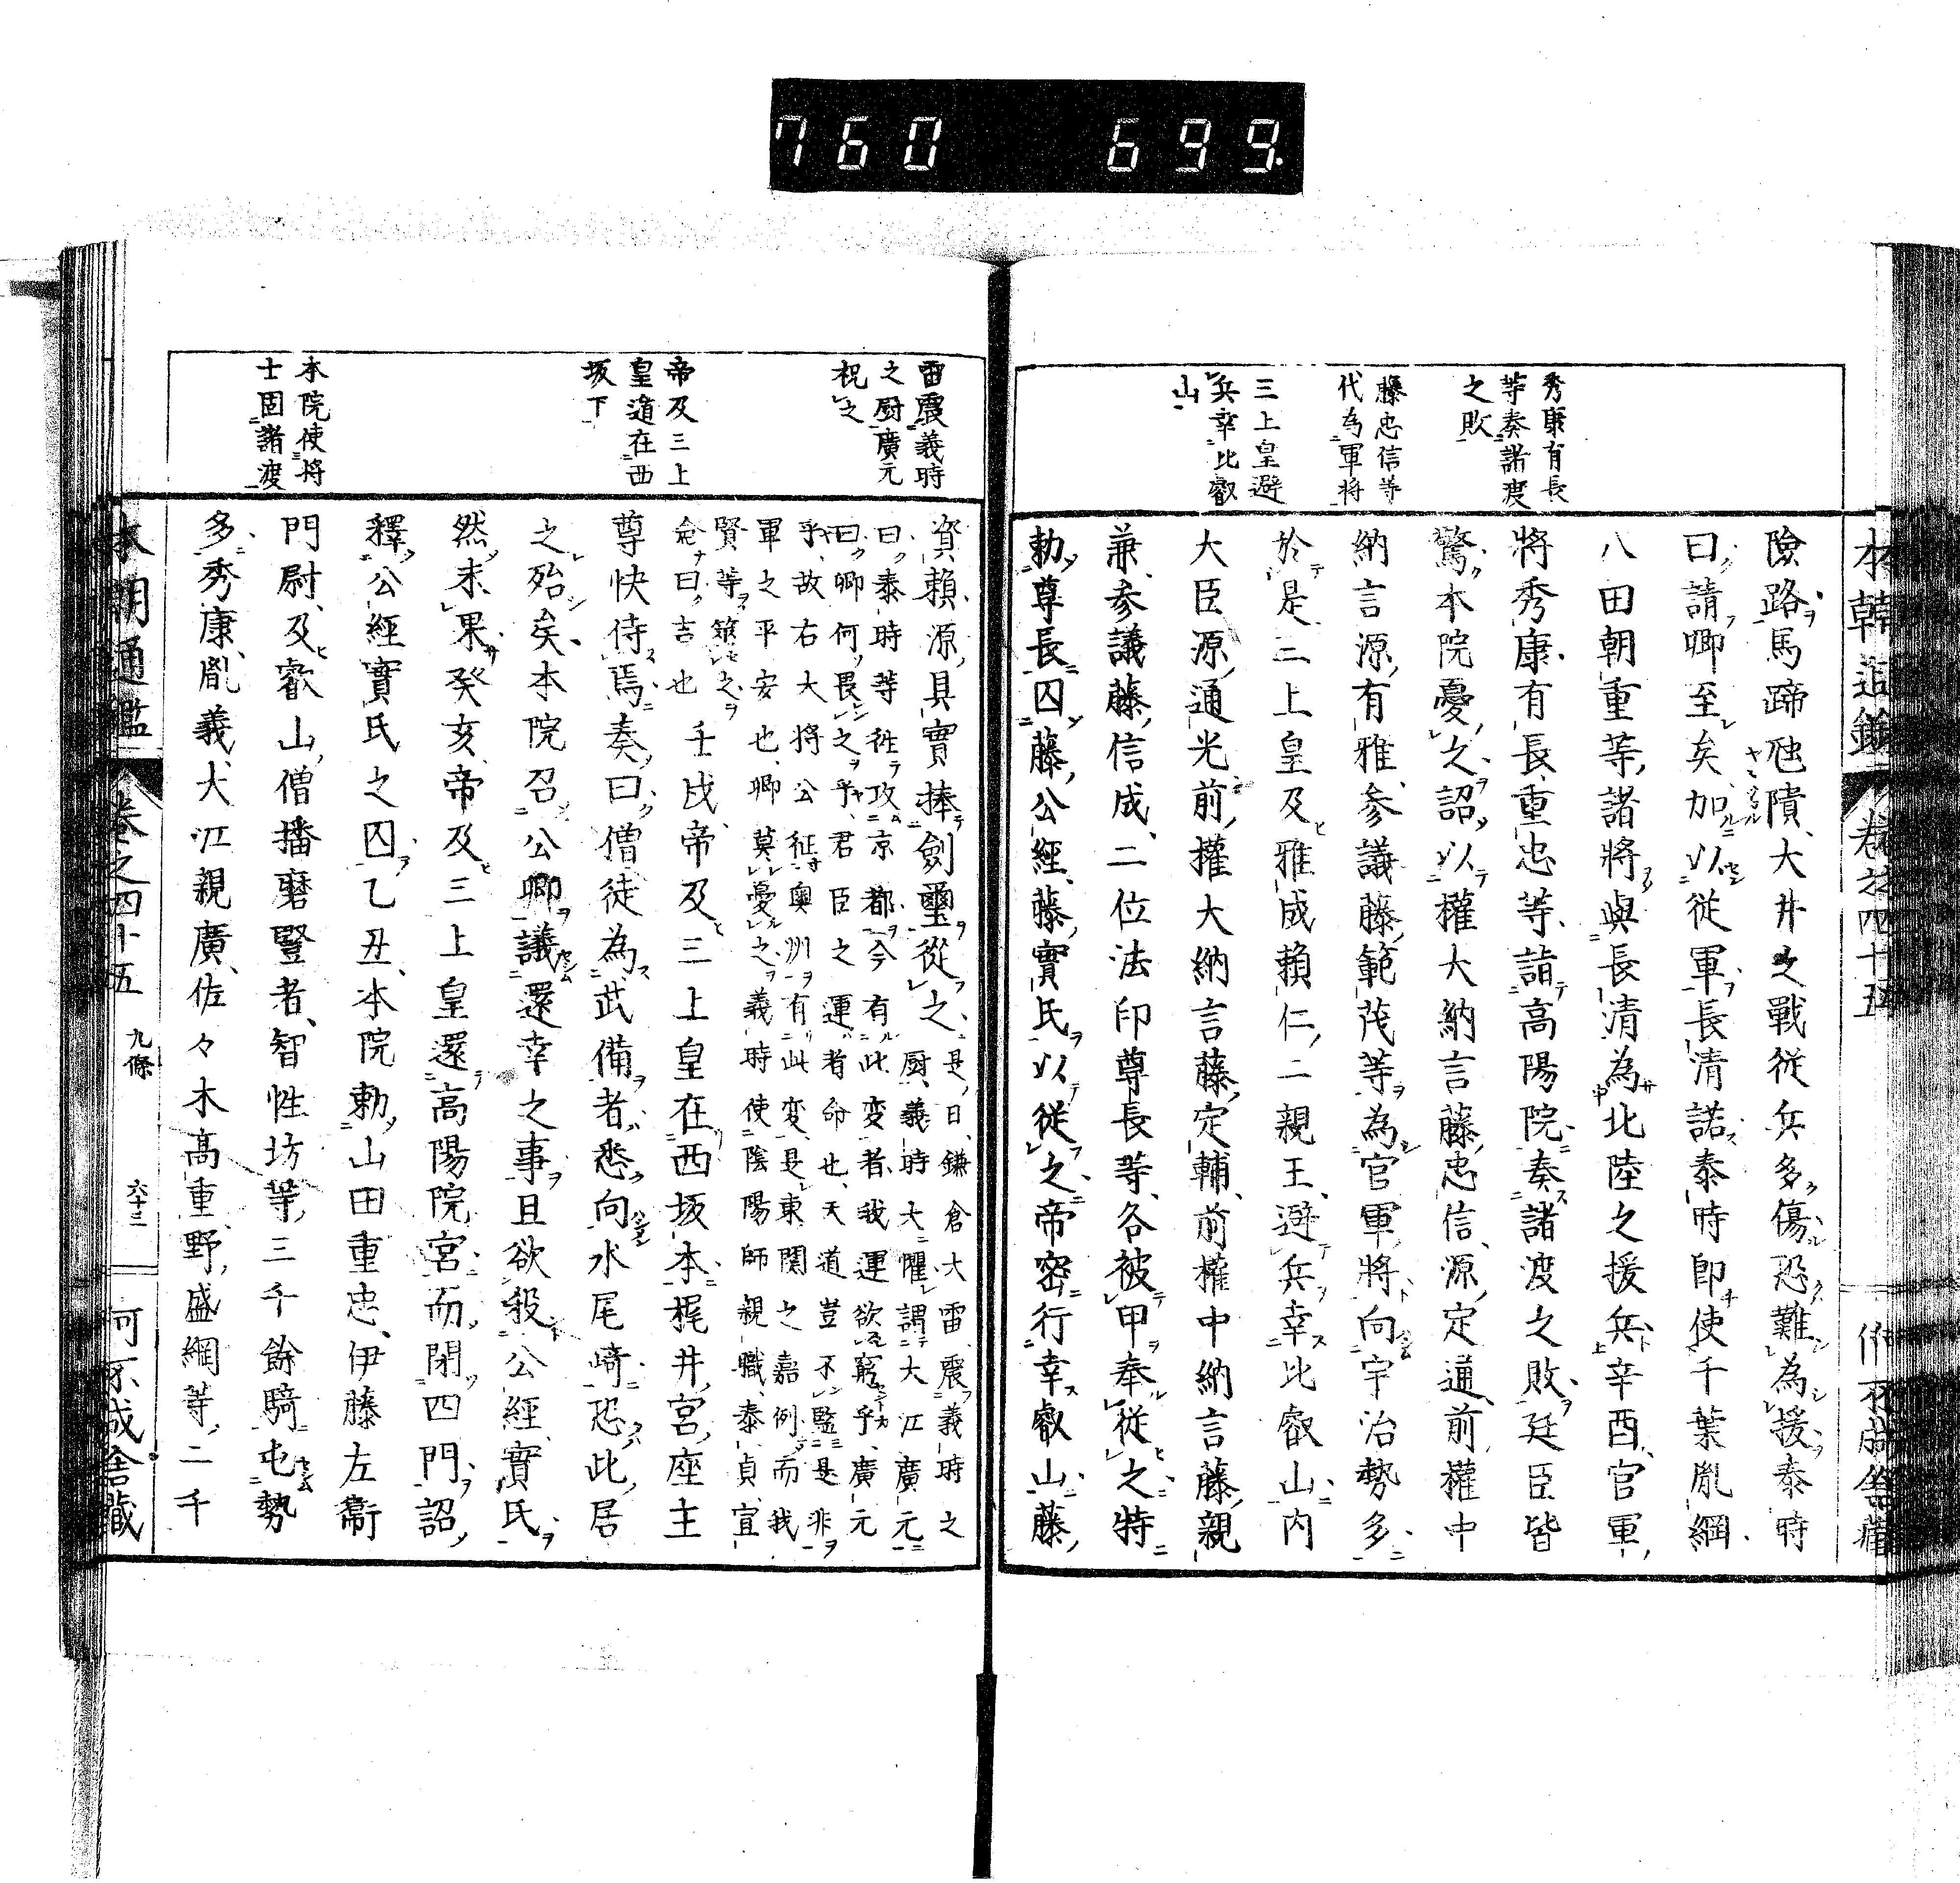 760 699
秀康有長
等奏諸渡
之敗
藤忠信等
代為軍将
三上皇避
兵幸比叡
山
險路馬蹄虺隤大井之戰従兵多傷恐難為援泰時
曰請卿至矣加以従軍長清諾泰時即使千葉胤綱
八田朝重等諸將與長清為北陸之援兵辛酉官軍
將秀康有長重忠等詣高陽院奏諸渡之敗廷臣皆
驚本院憂之詔以權大納言藤忠信源定通前權中
納言源有雅參議藤範茂等為官軍將向宇治勢多
於是三上皇及雅成賴仁二親王避兵幸比叡山内
大臣源通光前權大納言藤定輔前權中納言藤親
兼參議藤信成二位法印尊長等各被甲奉従之特
勅尊長囚藤公經藤實氏以従之帝密行幸叡山藤
雷震義時
之厨廣元
祝之
帝及三上
皇遷在西
坂下
本院使将
士固諸渡
資賴源具實捧劍璽從之
是日鎌倉大雷震義時之
厨義時大懼謂大江廣元
曰泰時等徃攻京都今有此変者我運欲窮乎廣元
曰卿何畏之乎君臣之運者命也天道豈不監是非
乎故右大将公征奥州有此変是東関之嘉例而我
軍之平安也卿莫憂之義時使陰陽師親職泰貞宣
賢等筮之
僉曰吉也
壬戌帝及三上皇在西坂本梶井宮座主
尊快侍焉奏曰僧徒為武備者悉向水尾崎恐此居
之殆矣本院召公卿議還幸之事且欲殺公經實氏
然未果癸亥帝及三上皇還高陽院宮而閉四門詔
釋公經實氏之囚乙丑本院勅山田重忠伊藤左衞
門尉及叡山僧播磨豎者智性坊等三千餘騎屯勢
多秀康胤義大江親廣佐々木高重野盛綱等二千
本朝通鑑 卷之四十五 九條 六十三